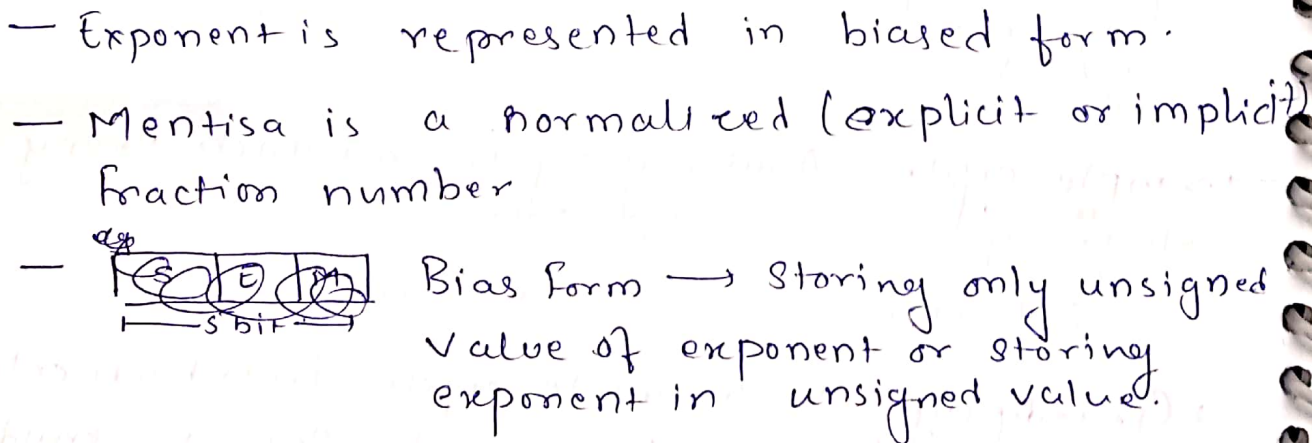 — Exponent is represented in biased form.
— Mentisa is a normalized (explicit or implicit)
fraction number
— Bias form → Storing only unsigned
value of exponent or storing
exponent in unsigned value.
S E M
5 bit